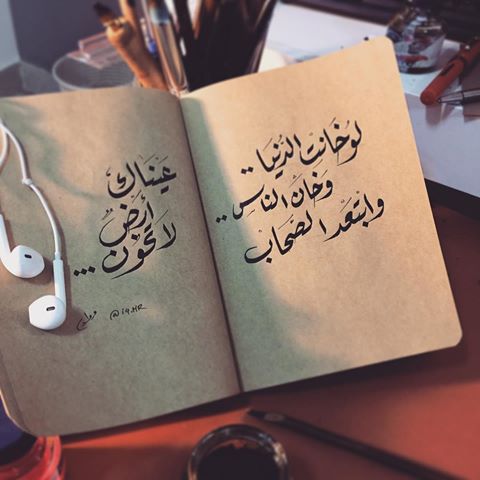 لَوْ خَانَت الدُّنْيَا ..
وَخَانَ النَّاس ..
وابْتَعَدَ الصَّحَاب
عَيْنَاكِ
أَرْضٌ
لا تَخُون ...
@i9.HR